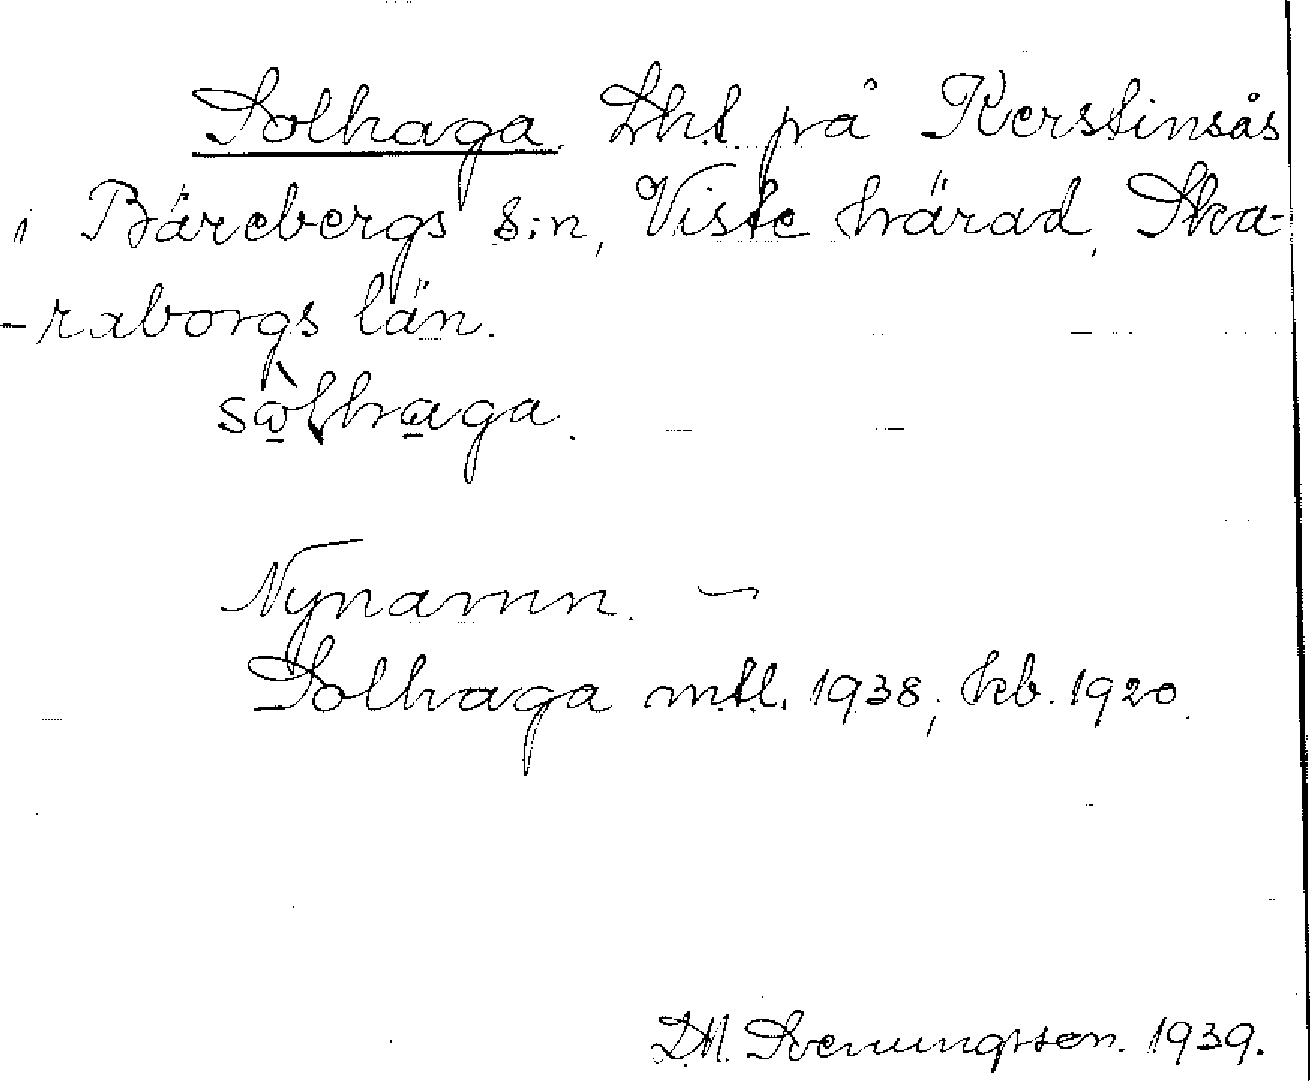 Solhaga. Lht. på Kerstinsås
i Bärebergs s:n, Viste härad, Ska-
-raborgs län.
sòlhaga.
Nynamn. —
Solhaga mtl. 1938; kb. 1920.
D.M. Svenungsson. 1939.